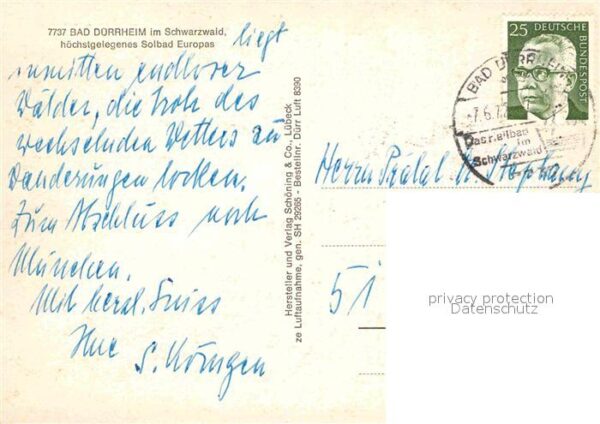 7737 BAD DÜRRHEIM im Schwarzwald,
höchstgelegenes Solbad Europas
liegt
inmitten endloser
Wälder, die trotz des
wechselnden Wetters zu
Wanderungen locken.
Zum Abschluss noch
München.
Mit herzl. Gruss
Ihre
S.
Hersteller und Verlag Schöning & Co., Lübeck
ze Luftaufnahme, gen. SH 29265 - Bestellnr. Dürr Luft 8390
25 DEUTSCHE
BUNDESPOST
BAD DÜRRHEIM
Das Heilbad
im
Schwarzwald
Herrn Prälat
51
privacy protection
Datenschutz